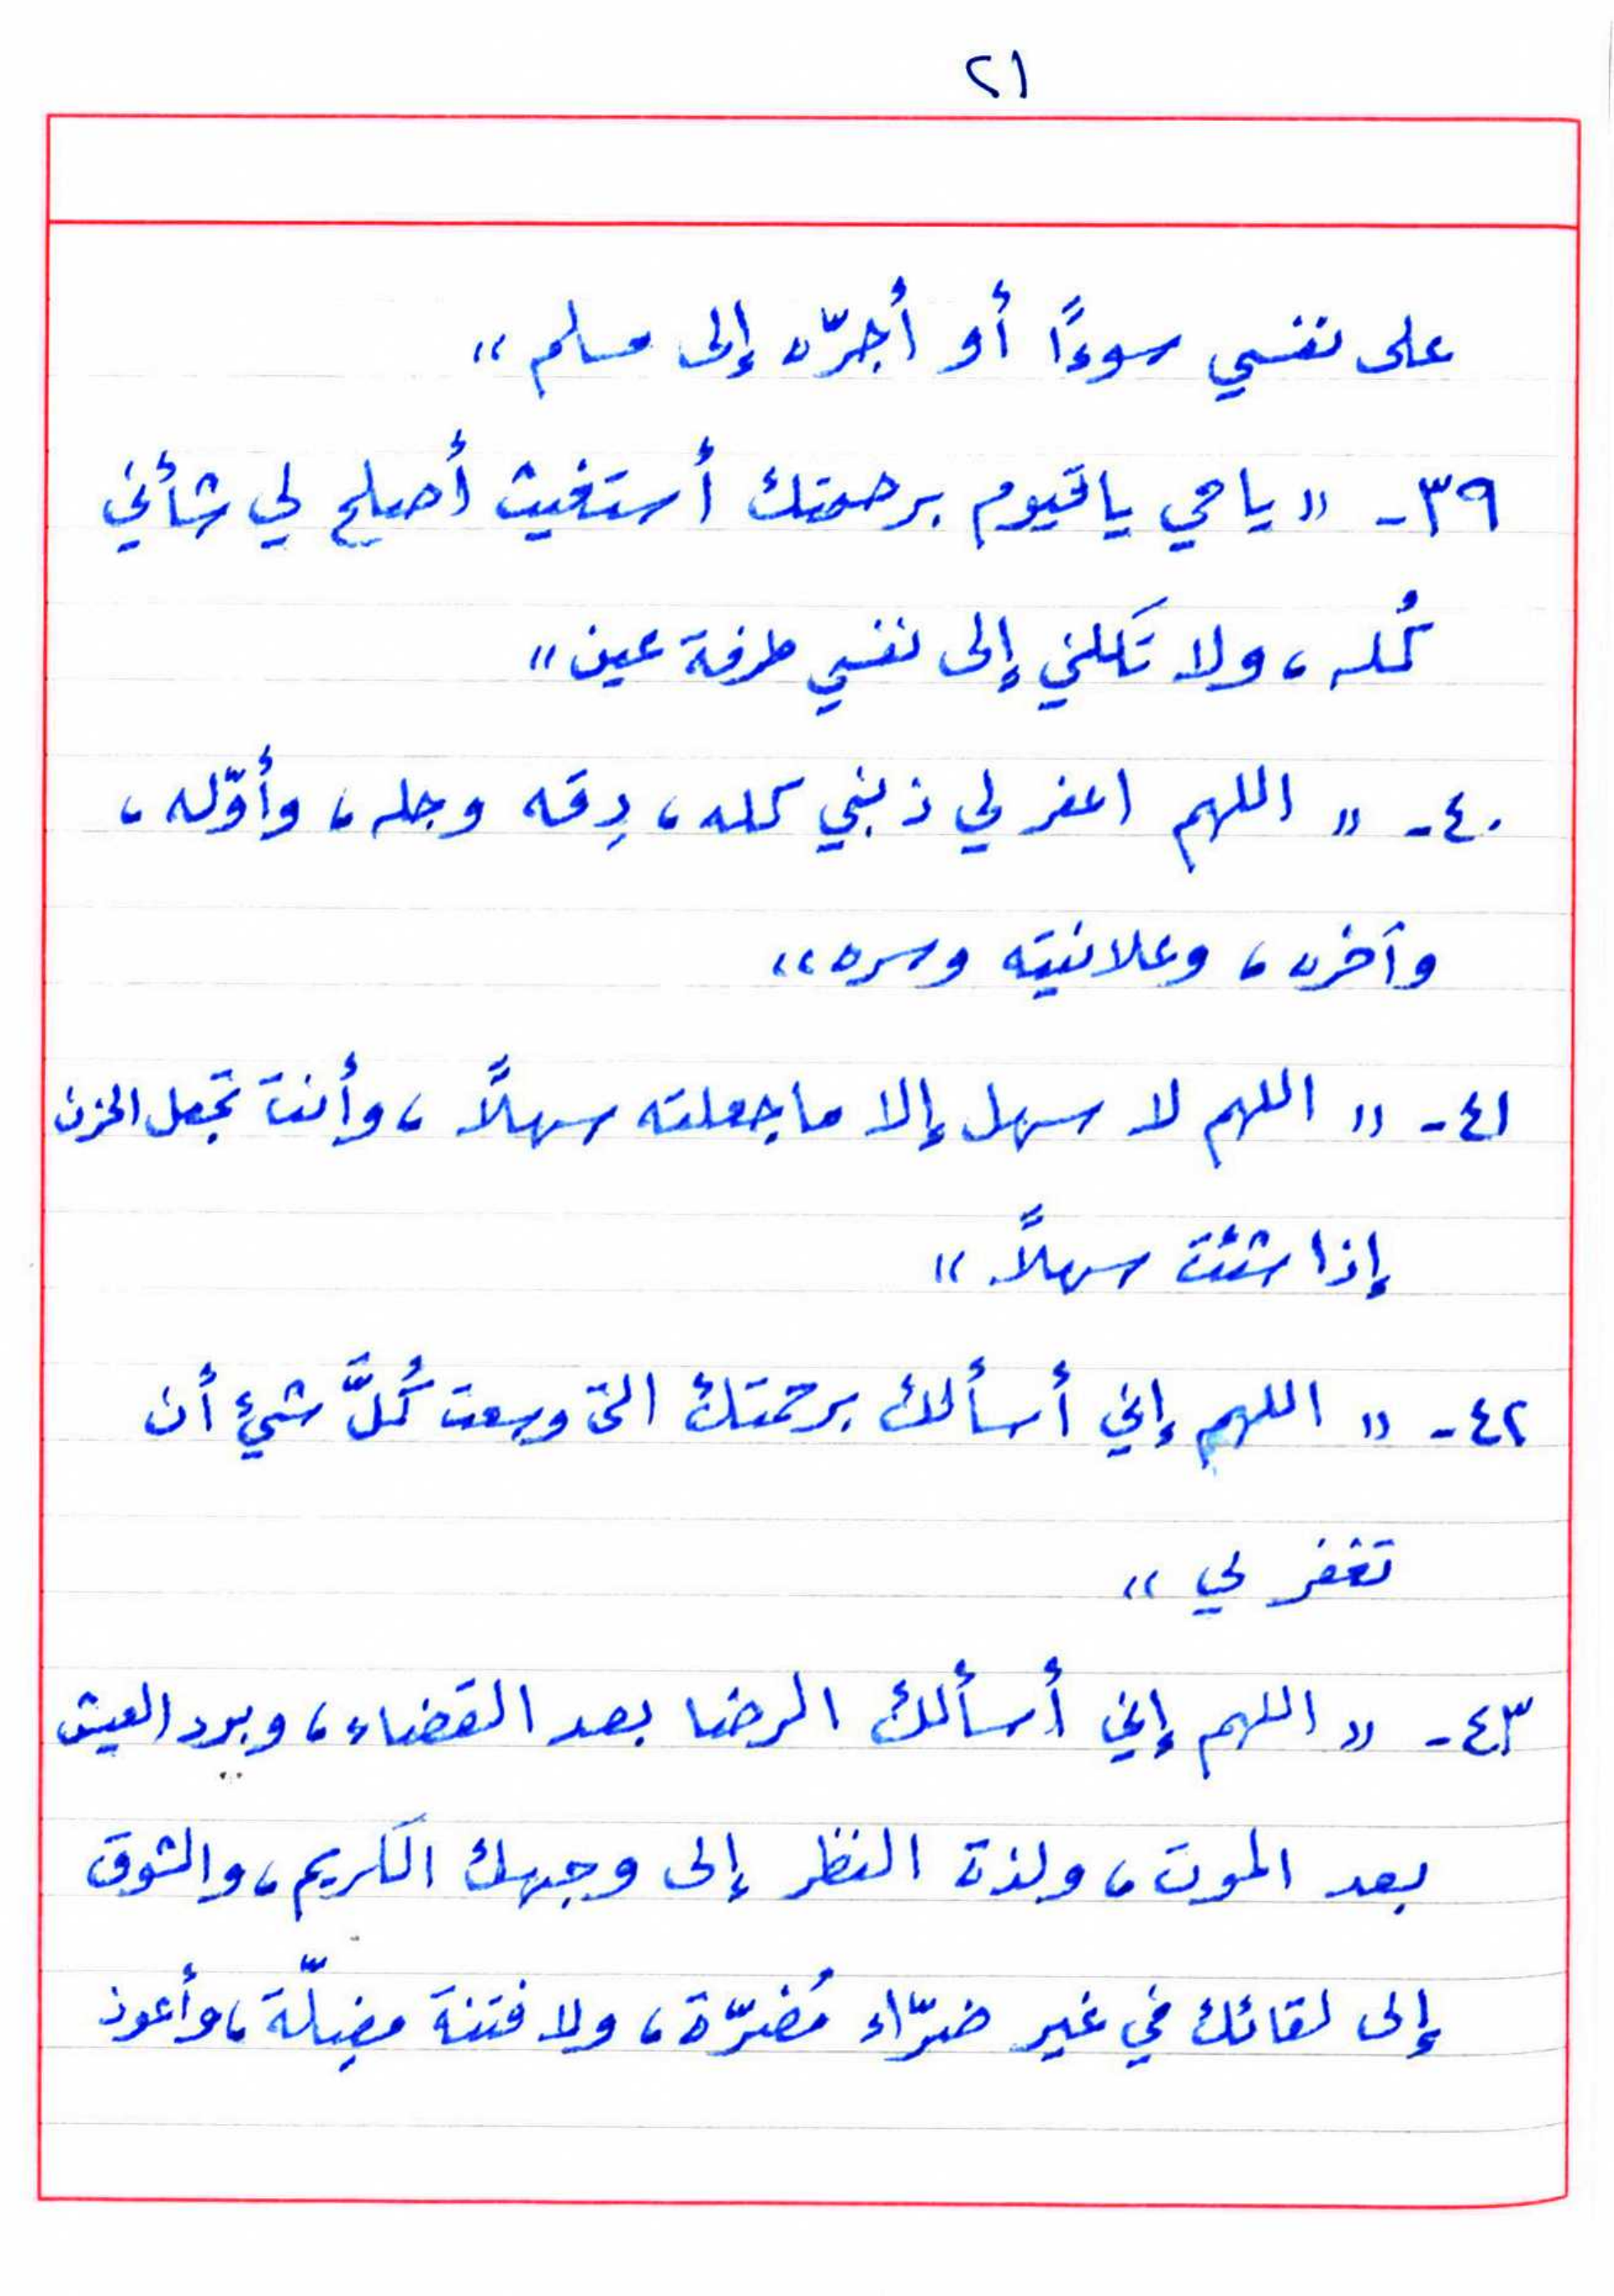 ٢١
على نفسي سوءًا أو أجرّه إلى مسلم"
٣٩- "يا حي يا قيوم برحمتك أستغيث أصلح لي شأني
كُله، ولا تَكلني إلى نفسي طرفة عين"
٤٠- "اللهم اغفر لي ذنبي كله، دِقه وجله، وأوّله،
وآخره، وعلانيته وسره"
٤١- "اللهم لا سهل إلا ما جعلته سهلًا، وأنت تجعل الحزن
إذا شئت سهلًا"
٤٢- "اللهم إني أسألك برحمتك التي وسعت كُلَّ شيءٍ أن
تغفر لي"
٤٣- "اللهم إني أسألك الرضا بعد القضاء، وبرد العيش
بعد الموت، ولذة النظر إلى وجهك الكريم، والشوق
إلى لقائك في غير ضرّاء مُضرّة، ولا فتنة مضِلّة، وأعوذ